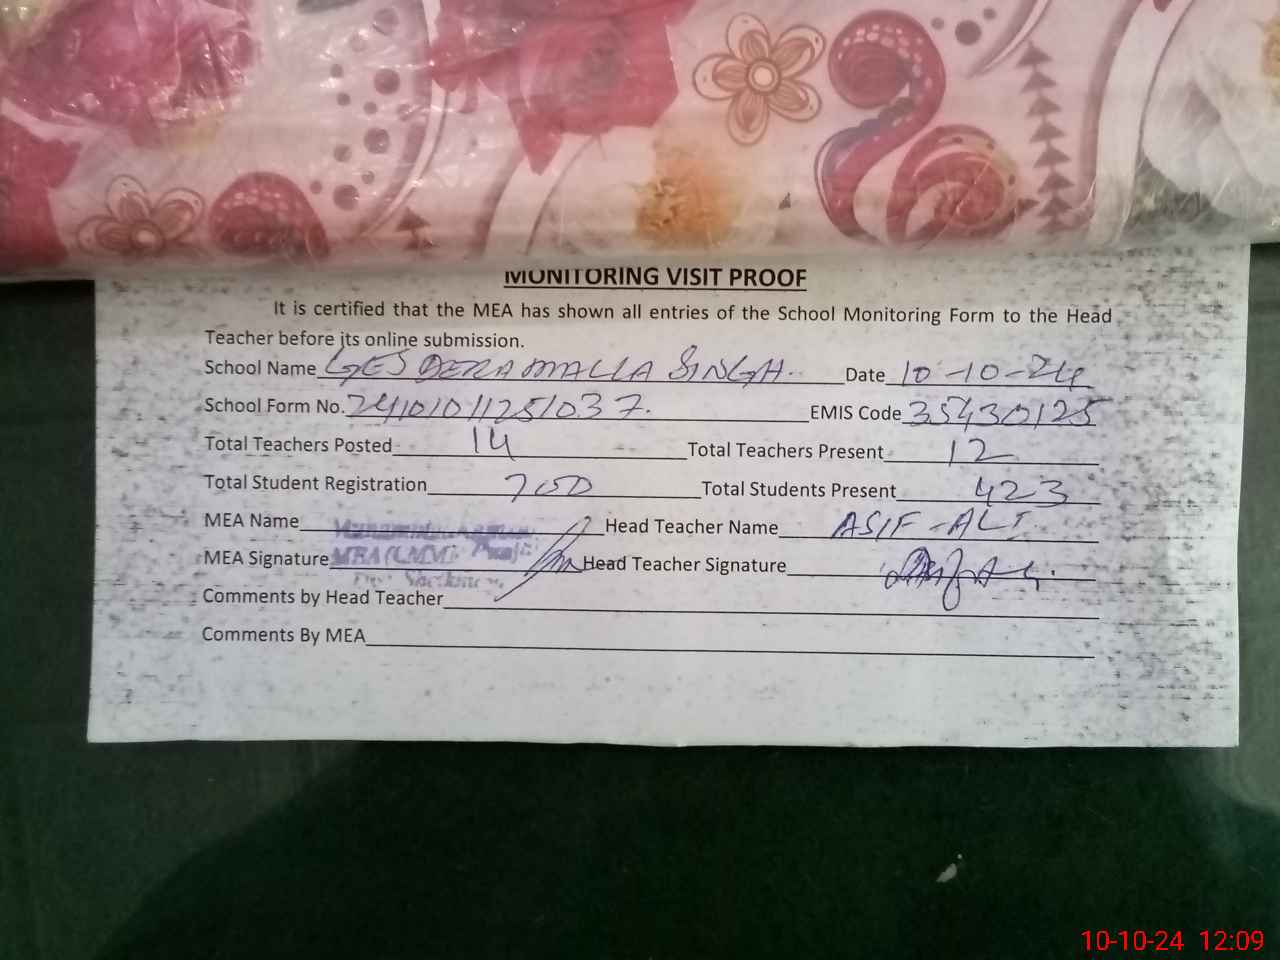 MONITORING VISIT PROOF
It is certified that the MEA has shown all entries of the School Monitoring Form to the Head
Teacher before its online submission.
School Name GES DERA MALLA SINGH. Date 10-10-24
School Form No. 24101011251037. EMIS Code 35430125
Total Teachers Posted 14 Total Teachers Present 12
Total Student Registration 700 Total Students Present 423
MEA Name Head Teacher Name ASIF-ALI
MEA Signature Head Teacher Signature
Comments by Head Teacher
Comments By MEA
10-10-24 12:09